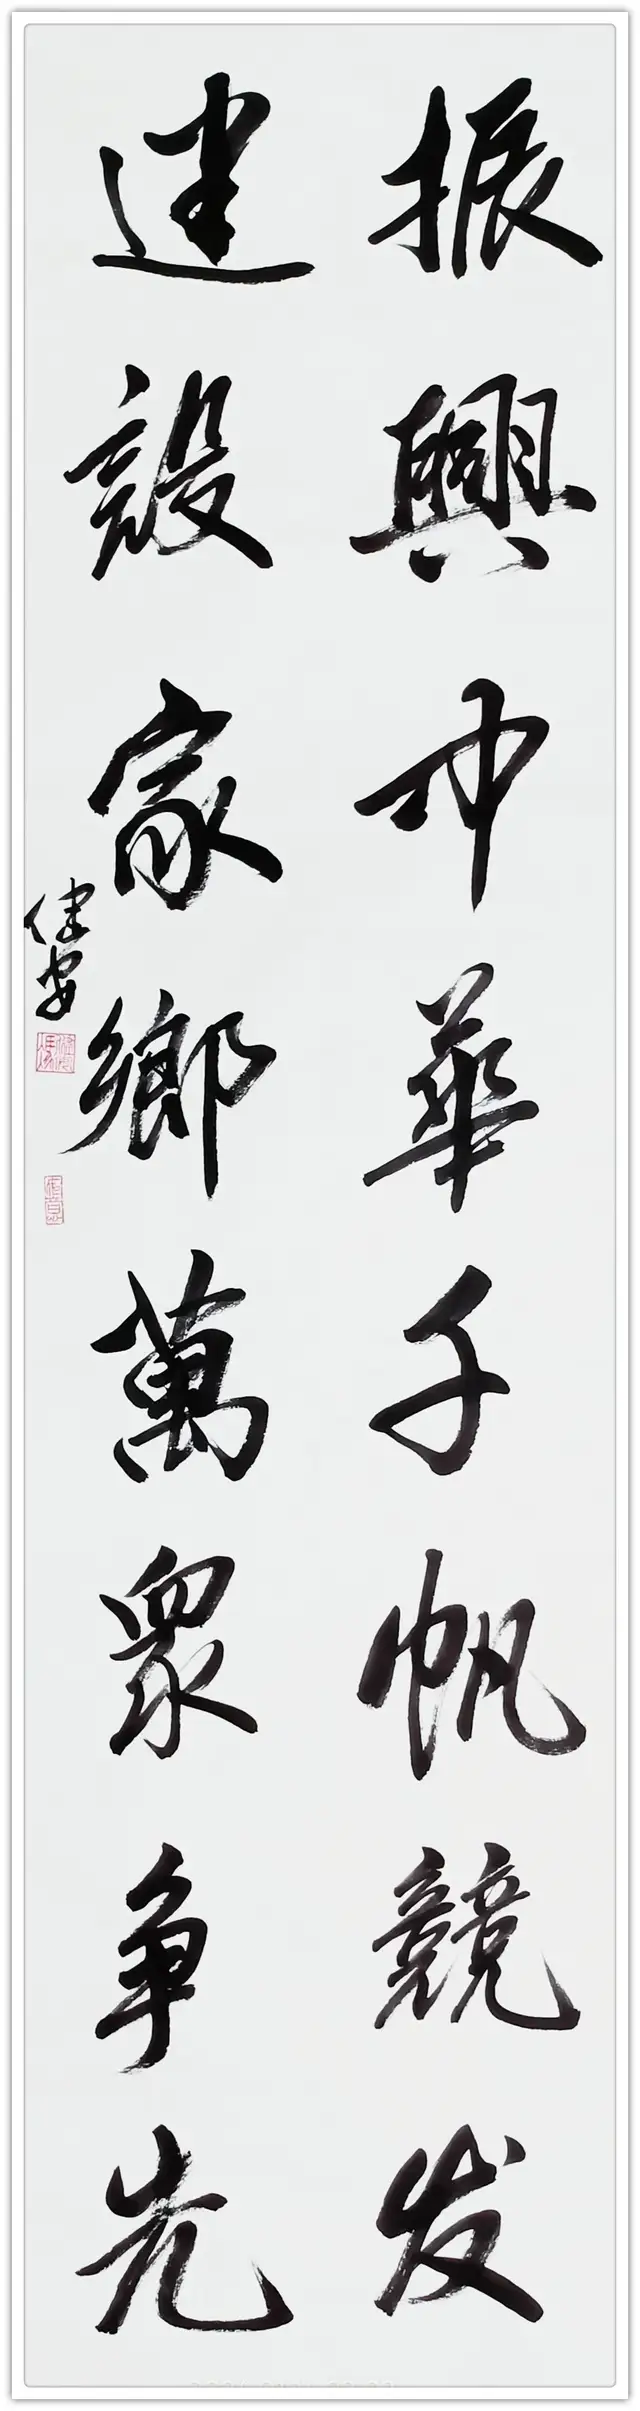 振興中華千帆競发
建設家鄉萬眾争先
健安